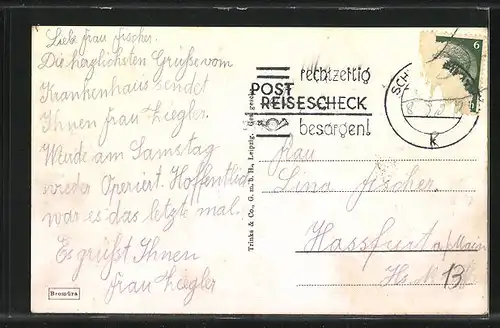 Liebe Frau Fischer.
Die herzlichsten Grüße vom
Krankenhaus sendet
Ihnen Frau Ziegler.
Wurde am Samstag
wieder Operiert. Hoffentlich
war es das letzte mal.
Es grüßt Ihnen
Frau Ziegler
Bromüra
Trinks & Co., G. m. b. H., Leipzig.
rechtzeitig
POST
REISESCHECK
besorgen!
6
SCH
k
Frau
Lina Fischer.
Hassfurt a/Main
Hs. N. 13